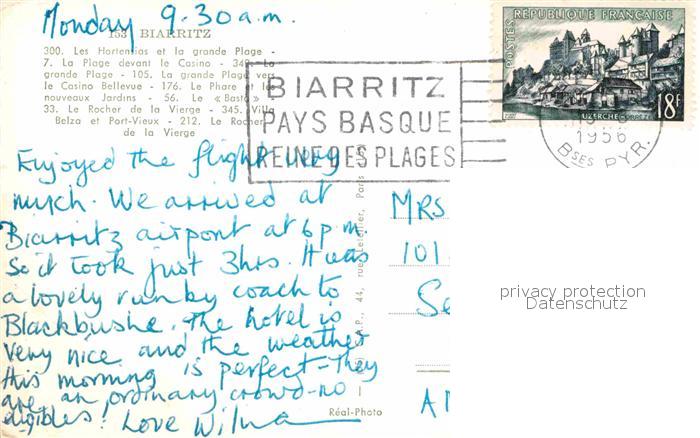 Monday 9.30a.m.
153 BIARRITZ
300. Les Hortensias et la grande Plage -
7. La Plage devant le Casino - 340. La
grande Plage - 105. La grande Plage vers
le Casino Bellevue - 176. Le Phare et les
nouveaux Jardins - 56. Le «Basta» -
33. Le Rocher de la Vierge - 345. Villa
Belza et Port-Vieux - 212. Le Rocher
de la Vierge
Enjoyed the flight very
much. We arrived at
Biarritz airport at 6p.m.
So it took just 3hrs. It was
a lovely run by coach to
Blackbushe. The hotel is
very nice and the weather
this morning is perfect - They
are an ordinary crowd - no
eligibles! Love Wilma
BIARRITZ
PAYS BASQUE
REINE DES PLAGES
POSTES RÉPUBLIQUE FRANÇAISE
UZERCHE-CORRÈZE
18F
1956
BSES PYR.
MRS
101
Se
Réal-Photo
privacy protection
Datenschutz